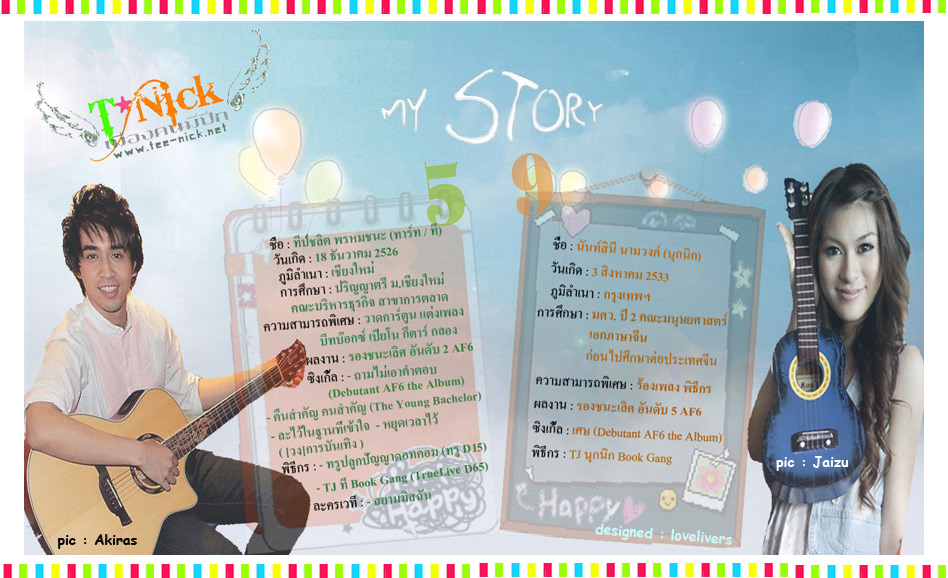 T★Nick
เมืองคนมีปีก
www.tee-nick.net
MY STORY
5
ชื่อ : ทีปชลิต พรหมชนะ (ทาร์ท / ที)
วันเกิด : 18 ธันวาคม 2526
ภูมิลำเนา : เชียงใหม่
การศึกษา : ปริญญาตรี ม.เชียงใหม่
คณะบริหารธุรกิจ สาขาการตลาด
ความสามารถพิเศษ : วาดการ์ตูน แต่งเพลง
บีทบ๊อกซ์ เปียโน กีตาร์ กลอง
ผลงาน : รองชนะเลิศ อันดับ 2 AF6
ซิงเกิ้ล : - ถามไม่เอาคำตอบ
(Debutant AF6 the Album)
- คืนสำคัญ คนสำคัญ (The Young Bachelor)
- ละไว้ในฐานที่เข้าใจ - หยุดเวลาไว้
( [วง]การบันเทิง )
พิธีกร : - ทรูปลูกปัญญาดอทคอม (ทรู D15)
- TJ ที Book Gang (TrueLive D65)
ละครเวที : - สยามมิสฉัน
Happy
pic : Akiras
9
ชื่อ : นันท์สินี นามวงศ์ (นุกนิก)
วันเกิด : 3 สิงหาคม 2533
ภูมิลำเนา : กรุงเทพฯ
การศึกษา : มศว. ปี 2 คณะมนุษยศาสตร์
เอกภาษาจีน
ก่อนไปศึกษาต่อประเทศจีน
ความสามารถพิเศษ : ร้องเพลง พิธีกร
ผลงาน : รองชนะเลิศ อันดับ 5 AF6
ซิงเกิ้ล : เศษ (Debutant AF6 the Album)
พิธีกร : TJ นุกนิก Book Gang
Happy
designed : lovelivers
pic : Jaizu